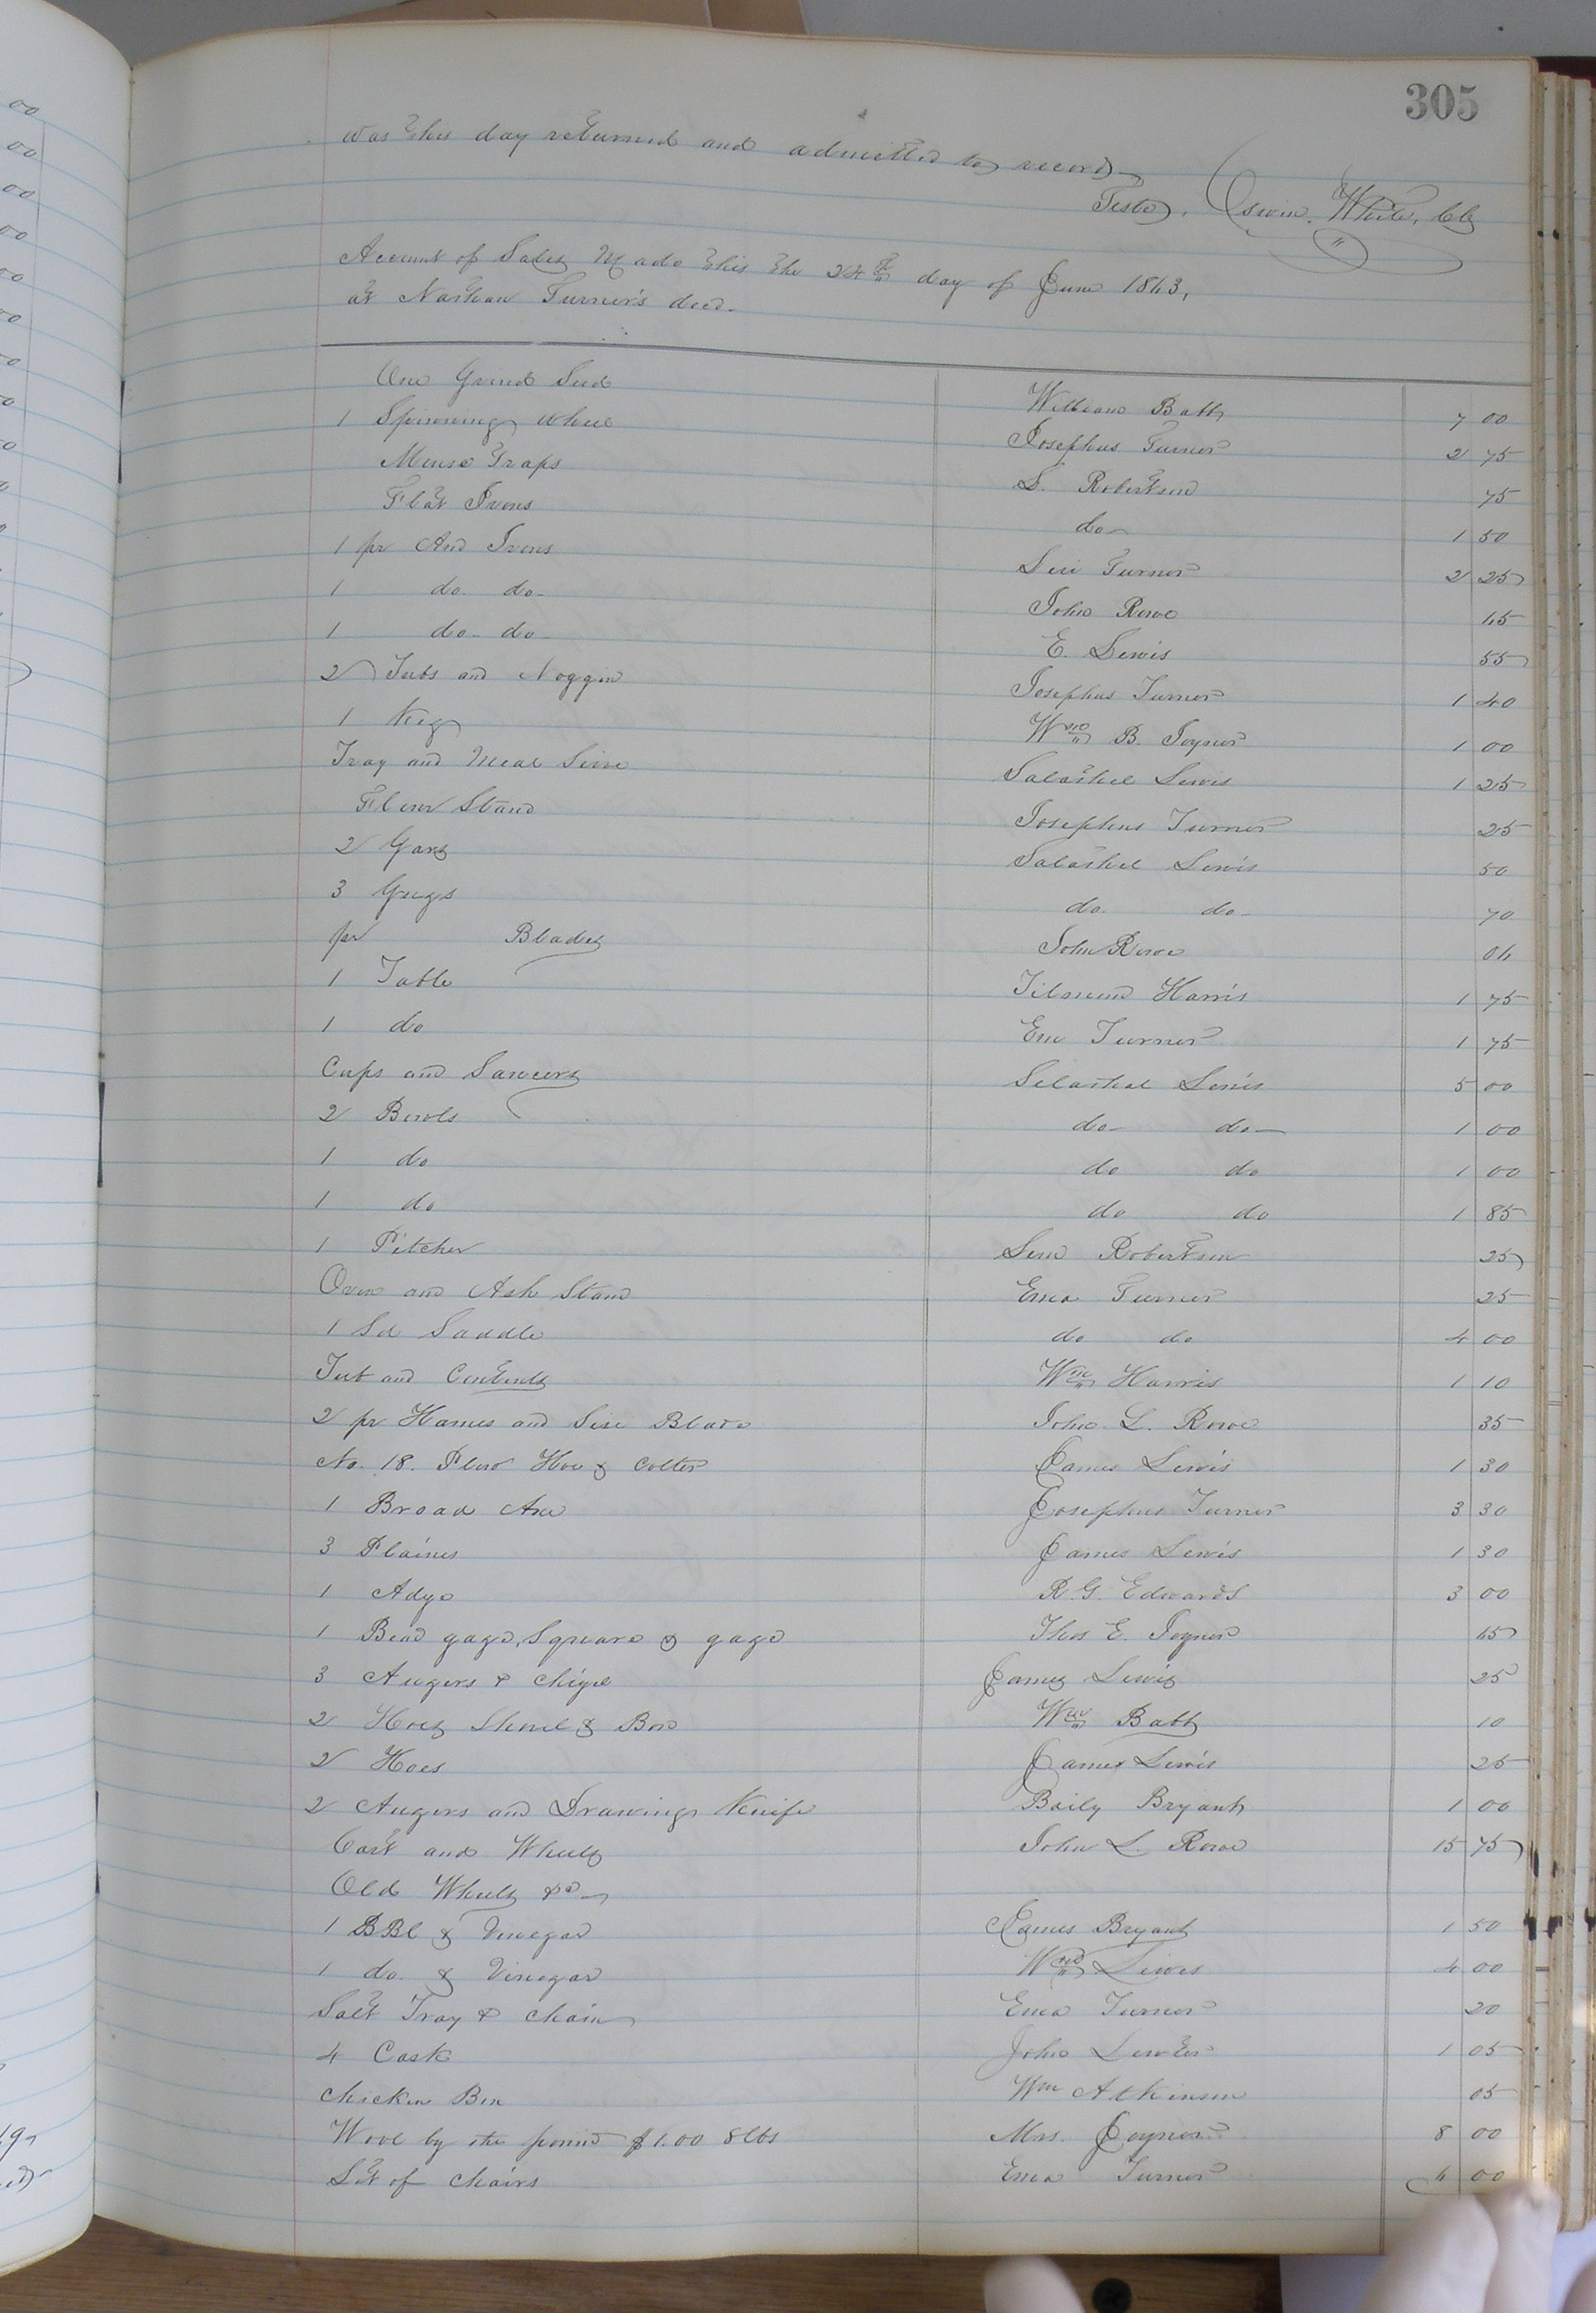 305
was this day returned and admitted to record
Teste, Oswin White, Clk
Account of Sales Made this the 24th day of June 1863,
at Nathan Turner's decd.
One Grind 7 00
1 Spinning wheel Josephus Turner 2 75
Mouse Traps S. Robertson 75
Flat Irons do 1 50
1 pr And Irons Turner 2 25
1 do do John Rowe
1 do do E. Lewis 55
2 Tubs and Noggin Josephus Turner 1 40
1 Keg Wm B. Joyner 1 00
Tray and Meal Sive Salathiel Lewis 1 25
Flour Stand Josephus Turner 25
2 Gars Salathiel Lewis 50
3 Gugs do do 70
pr Blades John Rowe
1 Table Harris 1 75
1 do Turner 1 75
Cups and Saucers Lewis 5 00
2 Bowls do do 1 00
1 do do do 1 00
1 do do do 1 85
1 Pitcher Robertson 25
Oven and Ash Stand Turner 25
1 Sd Saddle do do 4 00
Tub and Contents Wm Harris 1 10
2 pr Hames and Sise Blade John L. Rowe 35
No. 18. Plow Hoe & Colter James Lewis 1 30
1 Broad Axe Josephus Turner 3 30
3 Plaines James Lewis 1 30
1 Adge R. G. Edwards 3 00
1 Bead gage, Square & gage Thos E. Joyner
3 Augers & Chigel James Lewis 25
2 Hoes Shovel & Box Wm Babb 10
2 Hoes James Lewis 25
2 Augers and Drawing Knife Baily Bryant 1 00
Cart and Wheels John L. Rowe 15 75
Old Wheels &c
1 BBl & Vinegar James Bryant 1 50
1 do. & Vinegar Wm Lewis 4 00
Salt Tray & Chain Turner 20
4 Cask John 1 05
Chicken Wm Atkinson 05
Wool by the pound $1.00 8 lbs Mrs. Joyner 8 00
Set of Chairs Turner